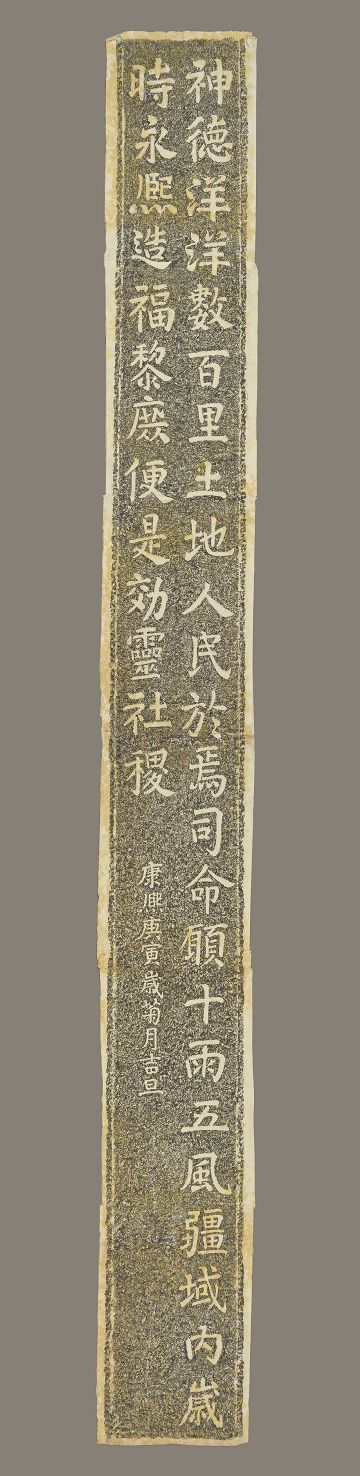 神德洋洋數百里土地人民於焉司命願十雨五風疆域內歲
時永熈造福黎庶便是効靈社稷
康熙庚寅歲菊月吉旦